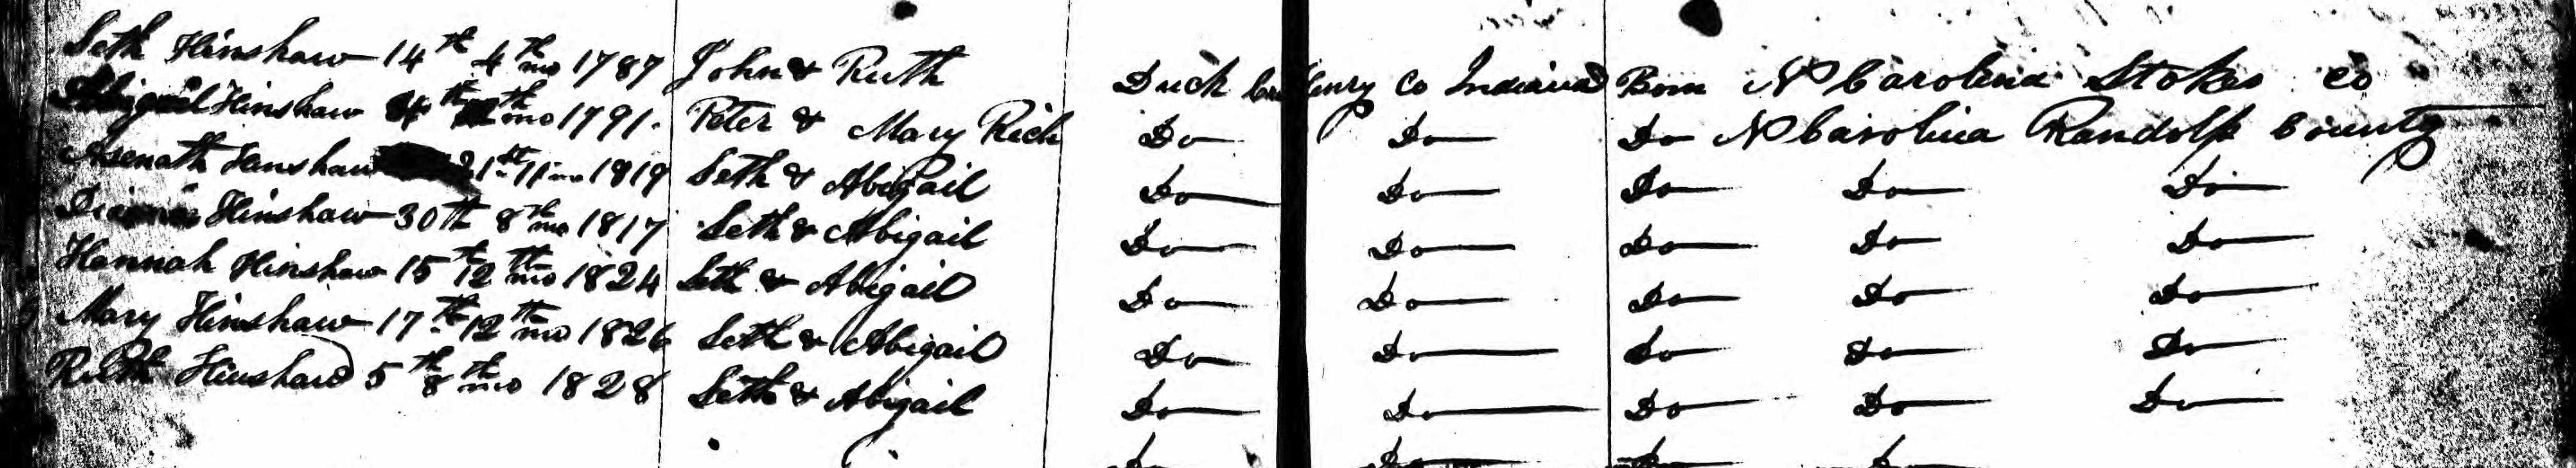 Seth Hinshaw 14th 4th mo 1787 John & Ruth Duck Henry Co Indiana Born N Carolina Stokes Co
Abigail Hinshaw 4th mo 1791. Peter & Mary Rich Do Do Do N Carolina Randolph County
Asenath Hinshaw 21st 11 mo 1819 Seth & Abigail Do Do Do Do Do
Hinshaw 30th 8th mo 1817 Seth & Abigail Do Do Do Do Do
Hannah Hinshaw 15th 12th mo 1824 Seth & Abigail Do Do Do Do Do
Mary Hinshaw 17th 12th mo 1826 Seth & Abigail Do Do Do Do Do
Ruth Hinshaw 5th 8th mo 1828 Seth & Abigail Do Do Do Do Do
Do Do Do Do